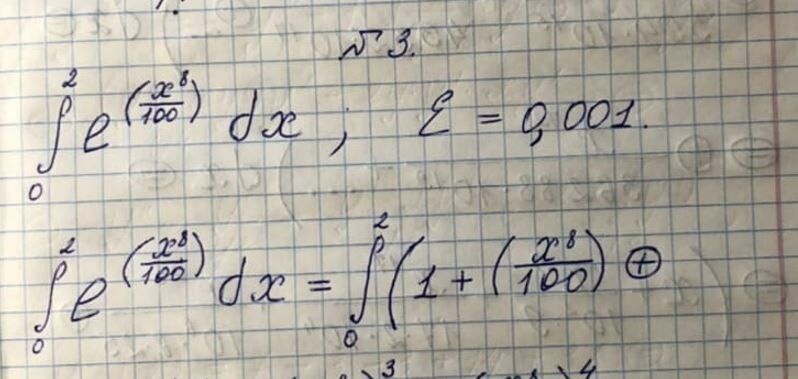 № 3.
∫₀² e^(x⁸/100) dx ; ε = 0,001.
∫₀² e^(x⁸/100) dx = ∫₀² (1 + (x⁸/100) ⊕